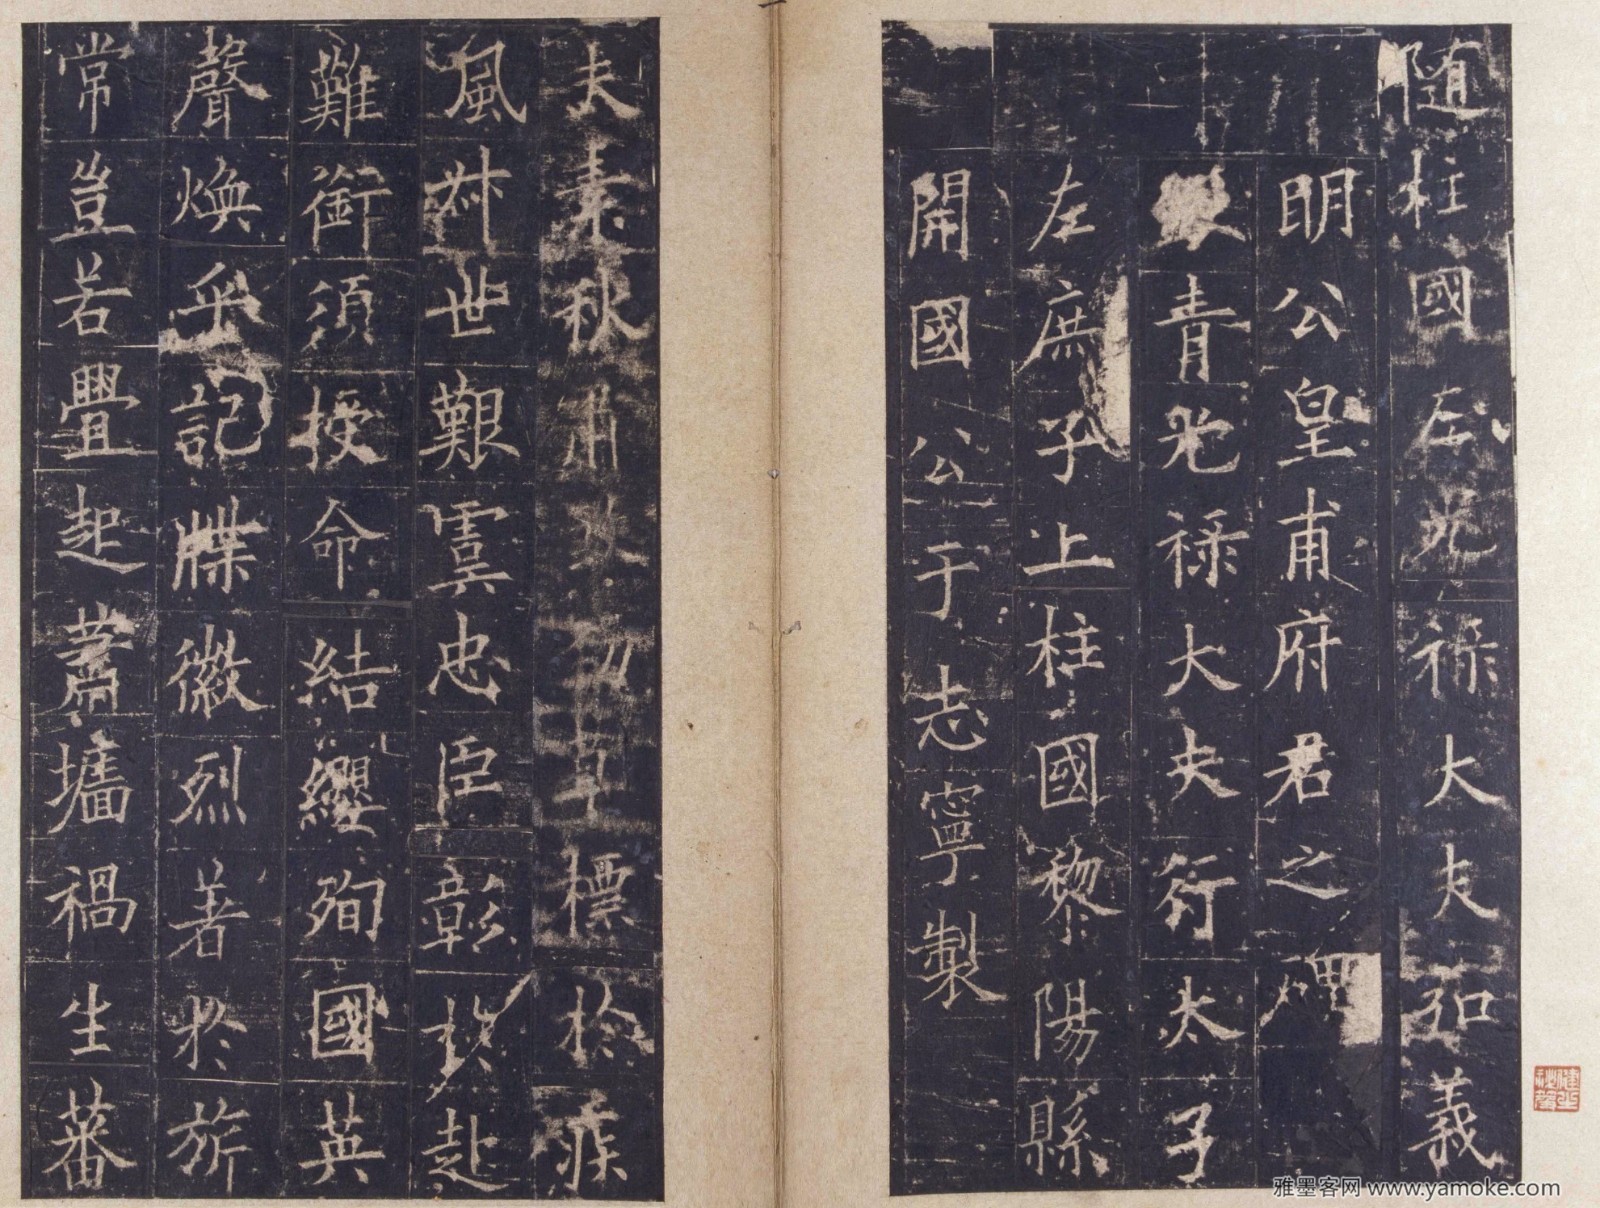 随柱國左光禄大夫弘義
明公皇甫府君之碑
銀青光禄大夫行太子
左庶子上柱國黎陽縣
開國公于志寧製
夫素秋肅煞勁草標於疾
風叶世艱虞忠臣彰於赴
難銜須授命結纓殉國英
聲煥乎記牒徽烈著於旂
常豈若疊起蕭墻禍生蕃
雅墨客网 www.yamoke.com